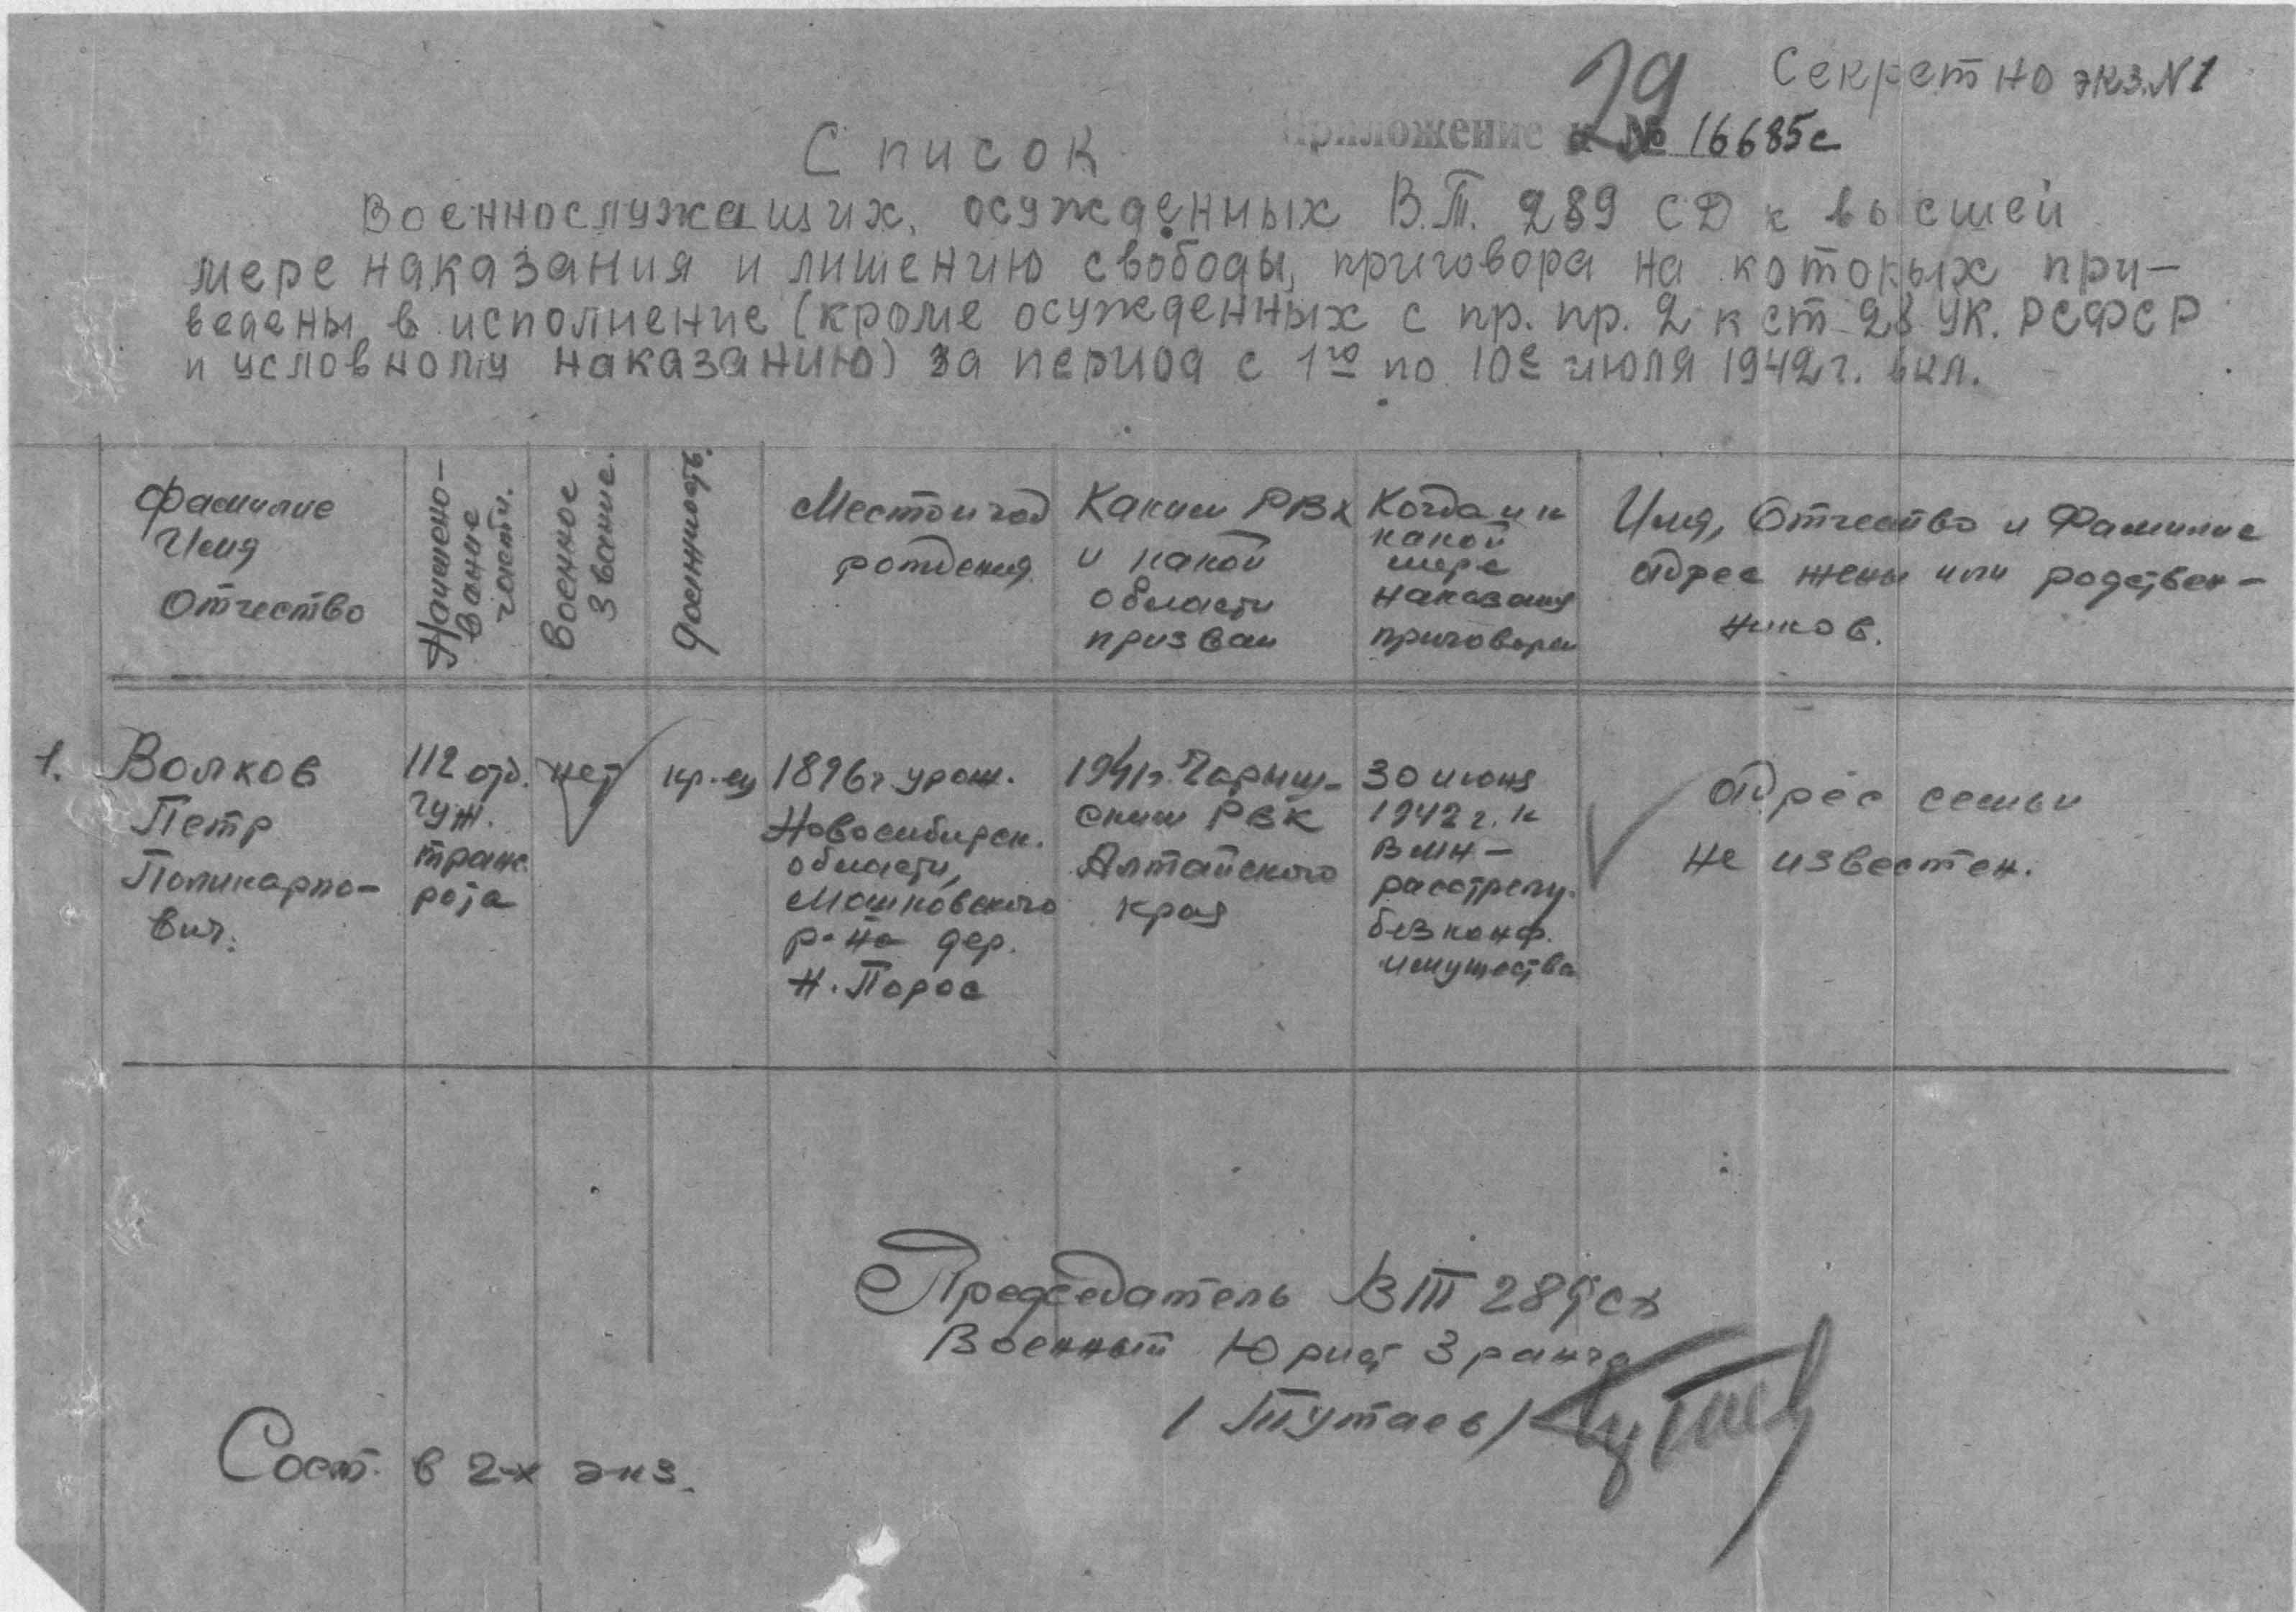 29
Секретно экз. № 1
Приложение к № 16685с
Список
Военнослужащих, осужденных В.Т. 289 СД к высшей
мере наказания и лишению свободы, приговора на которых при-
ведены в исполнение (кроме осужденных с пр. пр. 2 к ст 28 УК. РСФСР
и условному наказанию) за период с 1го по 10е июля 1942 г. вкл.
Фамилие
Имя
Отчество
Наимено-
вание
части.
Военное
звание.
Должность.
Место и год
рождения
Каким РВК
и какой
области
призван
Когда и к
какой
мере
наказания
приговорен
Имя, Отчество и Фамилие
адрес жены или родствен-
ников.
1.
Волков
Петр
Поликарпо-
вич.
112 отд.
гуж.
транс.
рота
нет
кр-ец
1896 г урож.
Новосибирск.
области,
Мошковского
р-на дер.
Н. Порос
1941 г. Чарыш-
ским РВК
Алтайского
края
30 июня
1942 г. к
ВМН -
расстрелу.
без конф.
имущества
Адрес семьи
не известен.
Председатель ВТ 289 сд
Военный Юрист 3 ранга
/ Тутаев /
Сост. в 2-х экз.